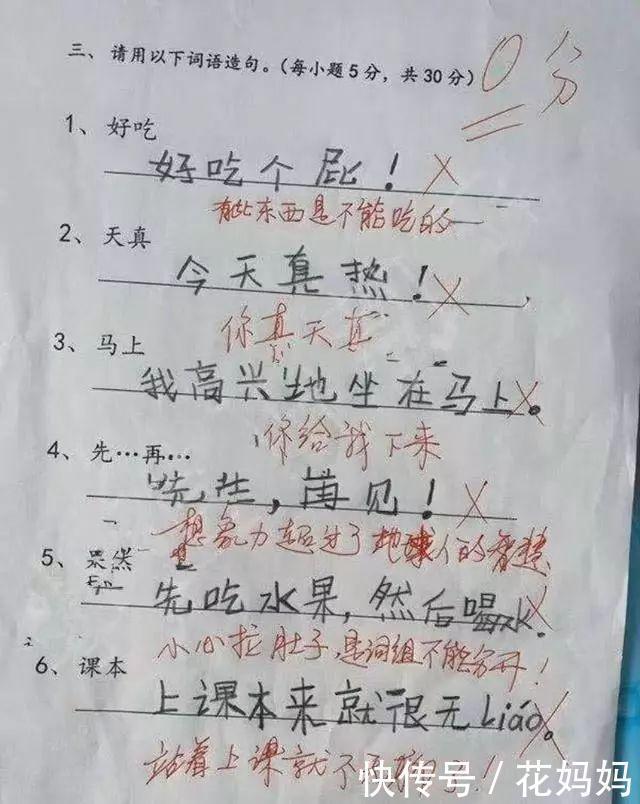 三、请用以下词语造句。(每小题5分，共30分)
0分
1、好吃
好吃个屁！
有些东西是不能吃的
2、天真
今天真热！
你真天真
3、马上
我高兴地坐在马上。
你给我下来
4、先…再…
先生，再见！
想象力超过了地球人的智慧
5、果然
先吃水果，然后喝水.
小心拉肚子，是词组不能分开！
6、课本
上课本来就很无Liáo。
站着上课就不无聊了！
快传号/花妈妈